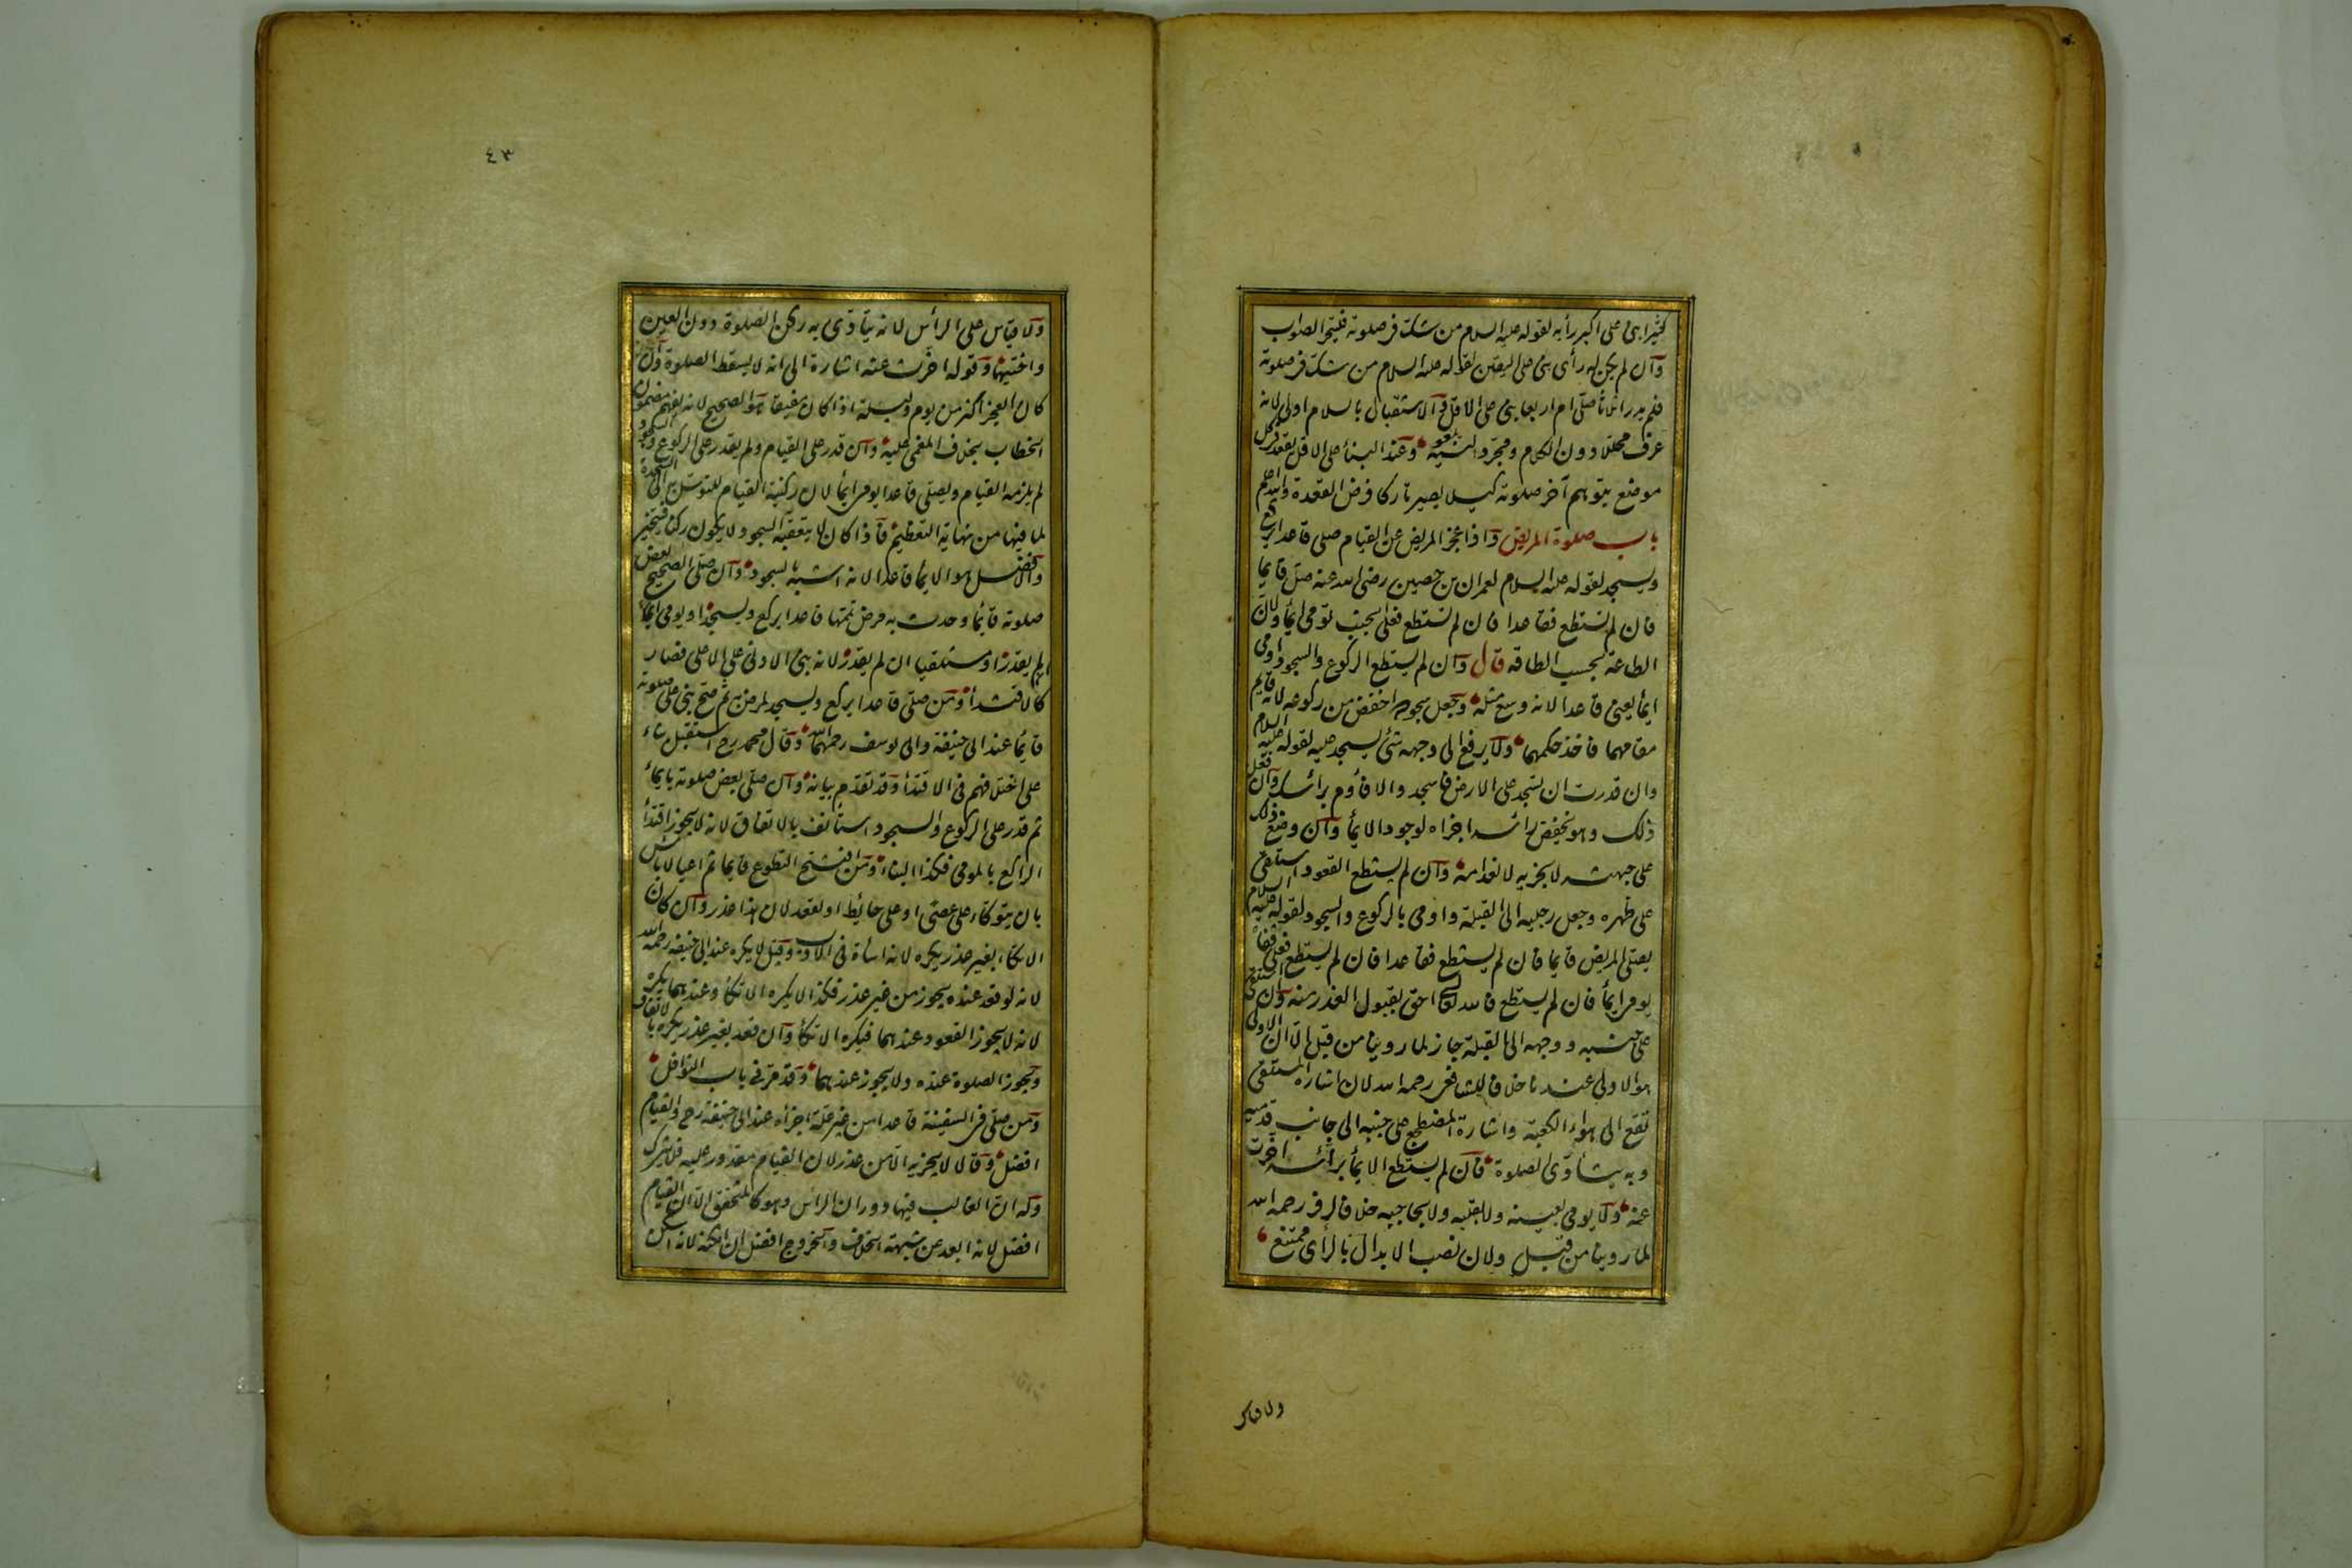 كثيرا بنى على اكبر رأيه لقوله عليه السلام من شك فى صلوته فليتحر الصواب
وان لم يكن له رأى بنى على اليقين لقوله عليه السلام من شك فى صلوته
فلم يدر اثلاثا صلى ام اربعا بنى على الاقل والاستقبال بالسلام اولى لانه
عرف محللا دون الكلام ومجرد النية يلغو وعند البناء على الاقل يقعد فى كل
موضع يتوهم آخر صلوته كيلا يصير تاركا فرض القعدة والله اعلم
باب صلوة المريض واذا عجز المريض عن القيام صلى قاعدا يركع
ويسجد لقوله عليه السلام لعمران بن حصين رضى الله عنه صل قائما
فان لم تستطع فقاعدا فان لم تستطع فعلى الجنب تومى ايماء ولان
الطاعة بحسب الطاقة قال وان لم يستطع الركوع والسجود اومى
ايماء يعنى قاعدا لانه وسع مثله وجعل سجوده اخفض من ركوعه لانه قايم
مقامهما فاخذ حكمهما ولا يرفع الى وجهه شئ يسجد عليه لقوله عليه السلام
وان قدرت ان تسجد على الارض فاسجد والا فأوم برأسك وان فعل
ذلك وهو يخفض رأسه اجزاه لوجود الايماء وان وضع ذلك
على جبهته لا يجزيه لانعدامه وان لم يستطع القعود استلقى
على ظهره وجعل رجليه الى القبلة واومى بالركوع والسجود لقوله عليه السلام
يصلى المريض قايما فان لم يستطع فقاعدا فان لم يستطع فعلى قفاه
يومى ايماء فان لم يستطع فالله تعالى احق بقبول العذر منه وان استلقى
على جنبه ووجهه الى القبلة جاز لما روينا من قبل الا ان الاولى
هو الاولى عندنا خلافا للشافعى رحمه الله لان اشارة المستلقى
تقع الى هواء الكعبة واشارة المضطجع على جنبه الى جانب قدميه
وبه يتأدى الصلوة فان لم يستطع الايماء برأسه اخرت
عنه ولا يومى بعينه ولا بقلبه ولا بحاجبيه خلافا لزفر رحمه الله
لما روينا من قبل ولان نصب الابدال بالرأى ممتنع
ولا قياس
٤٣
ولا قياس على الرأس لانه يتأدى به ركن الصلوة دون العين
واختيها وقوله اخرت عنه اشارة الى انه لا يسقط الصلوة وان
كان العجز اكثر من يوم وليلة اذا كان مفيقا هو الصحيح لانه يفهم مضمون
الخطاب بخلاف المغمى عليه وان قدر على القيام ولم يقدر على الركوع والسجود
لم يلزمه القيام ويصلى قاعدا يومى ايماء لان ركنية القيام للتوسل الى السجدة
لما فيها من نهاية التعظيم فاذا كان لا يتعقبه السجود لا يكون ركنا فيتخير
والافضل هو الايماء قاعدا لانه اشبه بالسجود وان صلى الصحيح بعض
صلوته قايما وحدث به مرض تمها قاعدا يركع ويسجد او يومى ايماء
ان لم يقدر او مستلقيا ان لم يقدر لانه بنى الادنى على الاعلى فصار
كالاقتداء ومن صلى قاعدا يركع ويسجد لمرض ثم صح بنى على صلوته
قايما عند ابى حنيفة وابى يوسف رحمهما الله وقال محمد رح استقبل بناء
على اختلافهم فى الاقتداء وقد تقدم بيانه وان صلى بعض صلوته بايماء
ثم قدر على الركوع والسجود استأنف بالاتفاق لانه لا يجوز اقتداء
الراكع بالمومى فكذا البناء ومن افتتح التطوع قايما ثم اعيا لا بأس
بان يتوكاء على عصى او على حائط او يقعد لان هذا عذر وان كان
الاتكاء بغير عذر يكره لانه اساءة فى الادب وقيل لا يكره عند ابى حنيفة رحمه الله
لانه لو قعد عنده يجوز من غير عذر فكذا لا يكره الاتكاء وعندهما يكره
لانه لا يجوز القعود عندهما فيكره الاتكاء وان قعد بغير عذر يكره بالاتفاق
وتجوز الصلوة عنده ولا يجوز عندهما وقد مر فى باب النوافل
ومن صلى فى السفينة قاعدا من غير علة اجزاه عند ابى حنيفة رح والقيام
افضل وقالا لا يجزيه الا من عذر لان القيام مقدور عليه فلا يترك
وله ان الغالب فيها دوران الرأس وهو كالمتحقق الا ان القيام
افضل لانه ابعد عن شبهة الخلاف والخروج افضل ان امكنه لانه اسكن